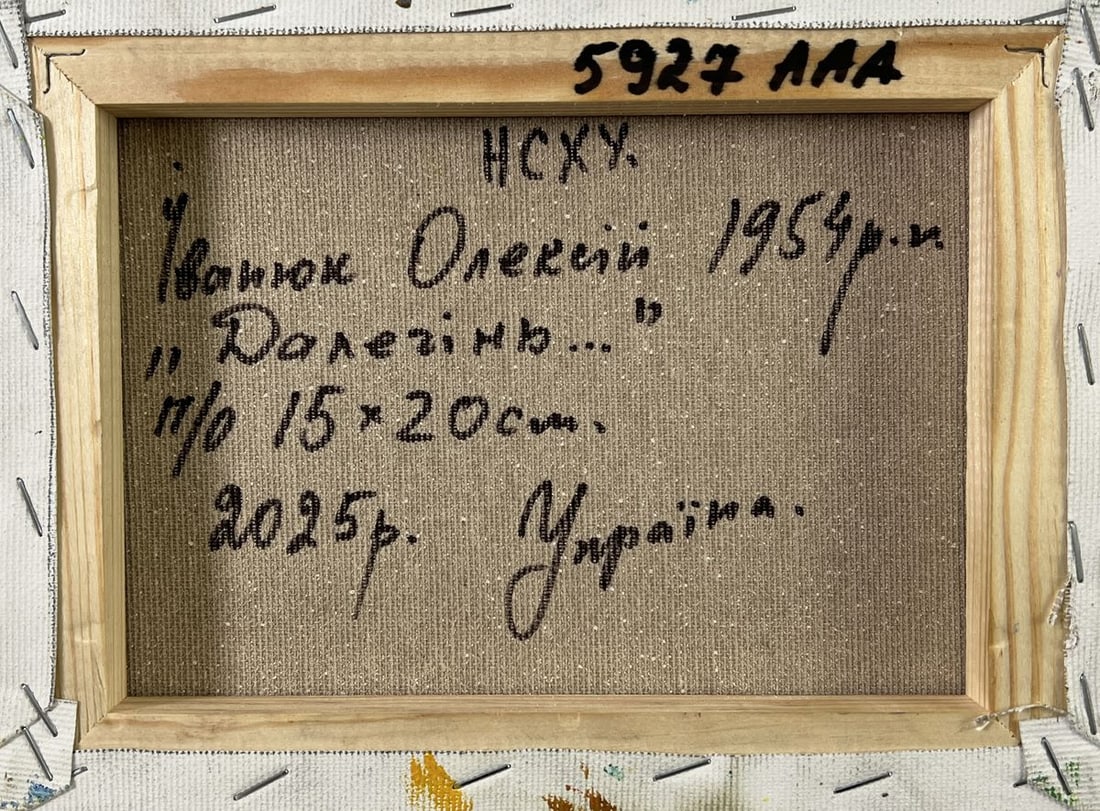 5927 ААА
НСХУ.
Іванюк Олексій 1954р.н.
„Далегінь..."
п/о 15×20см.
2025р. Україна.